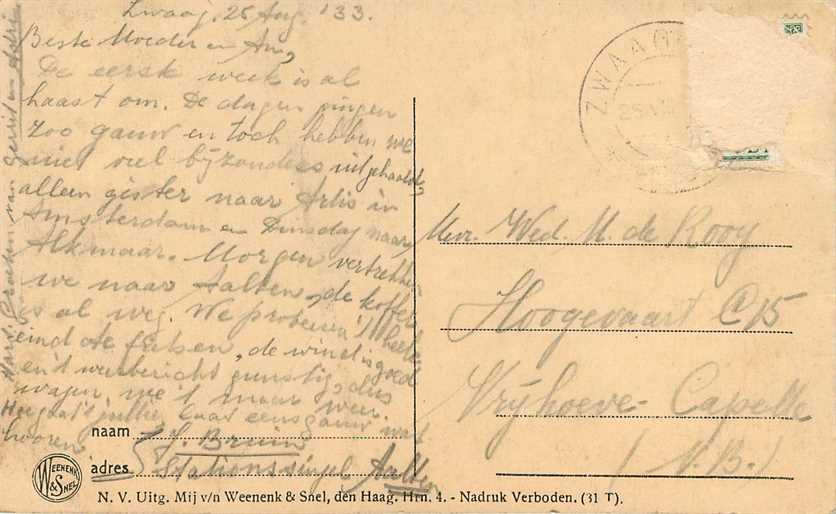 Zwaag, 25 Aug. '33.
Beste Moeder en An,
De eerste week is al
haast om. De dagen gingen
zoo gauw en toch hebben we
niet veel bijzonders uitgehaald,
alleen gister naar Artis in
Amsterdam en Dinsdag naar
Alkmaar. Morgen vertrekken
we naar Aalten, de koffer
is al weg. We probeeren 't heele
eind te fietsen, de wind is goed
en 't weerbericht gunstig, dus
wagen we 't maar weer.
Hoe gaat 't jullie? Laat eens gauw wat
hooren
Hart. Groeten van Gerrit en Adrie
naam J. Bruin
adres Stationssingel Aalten
ZWAAG
Mevr. Wed. M. de Rooy
Hoogevaart C 15
Vrijhoeve-Capelle
(N.B.)
WEENENK & SNEL
N. V. Uitg. Mij v/n Weenenk & Snel, den Haag. Hrn. 4. - Nadruk Verboden. (31 T).